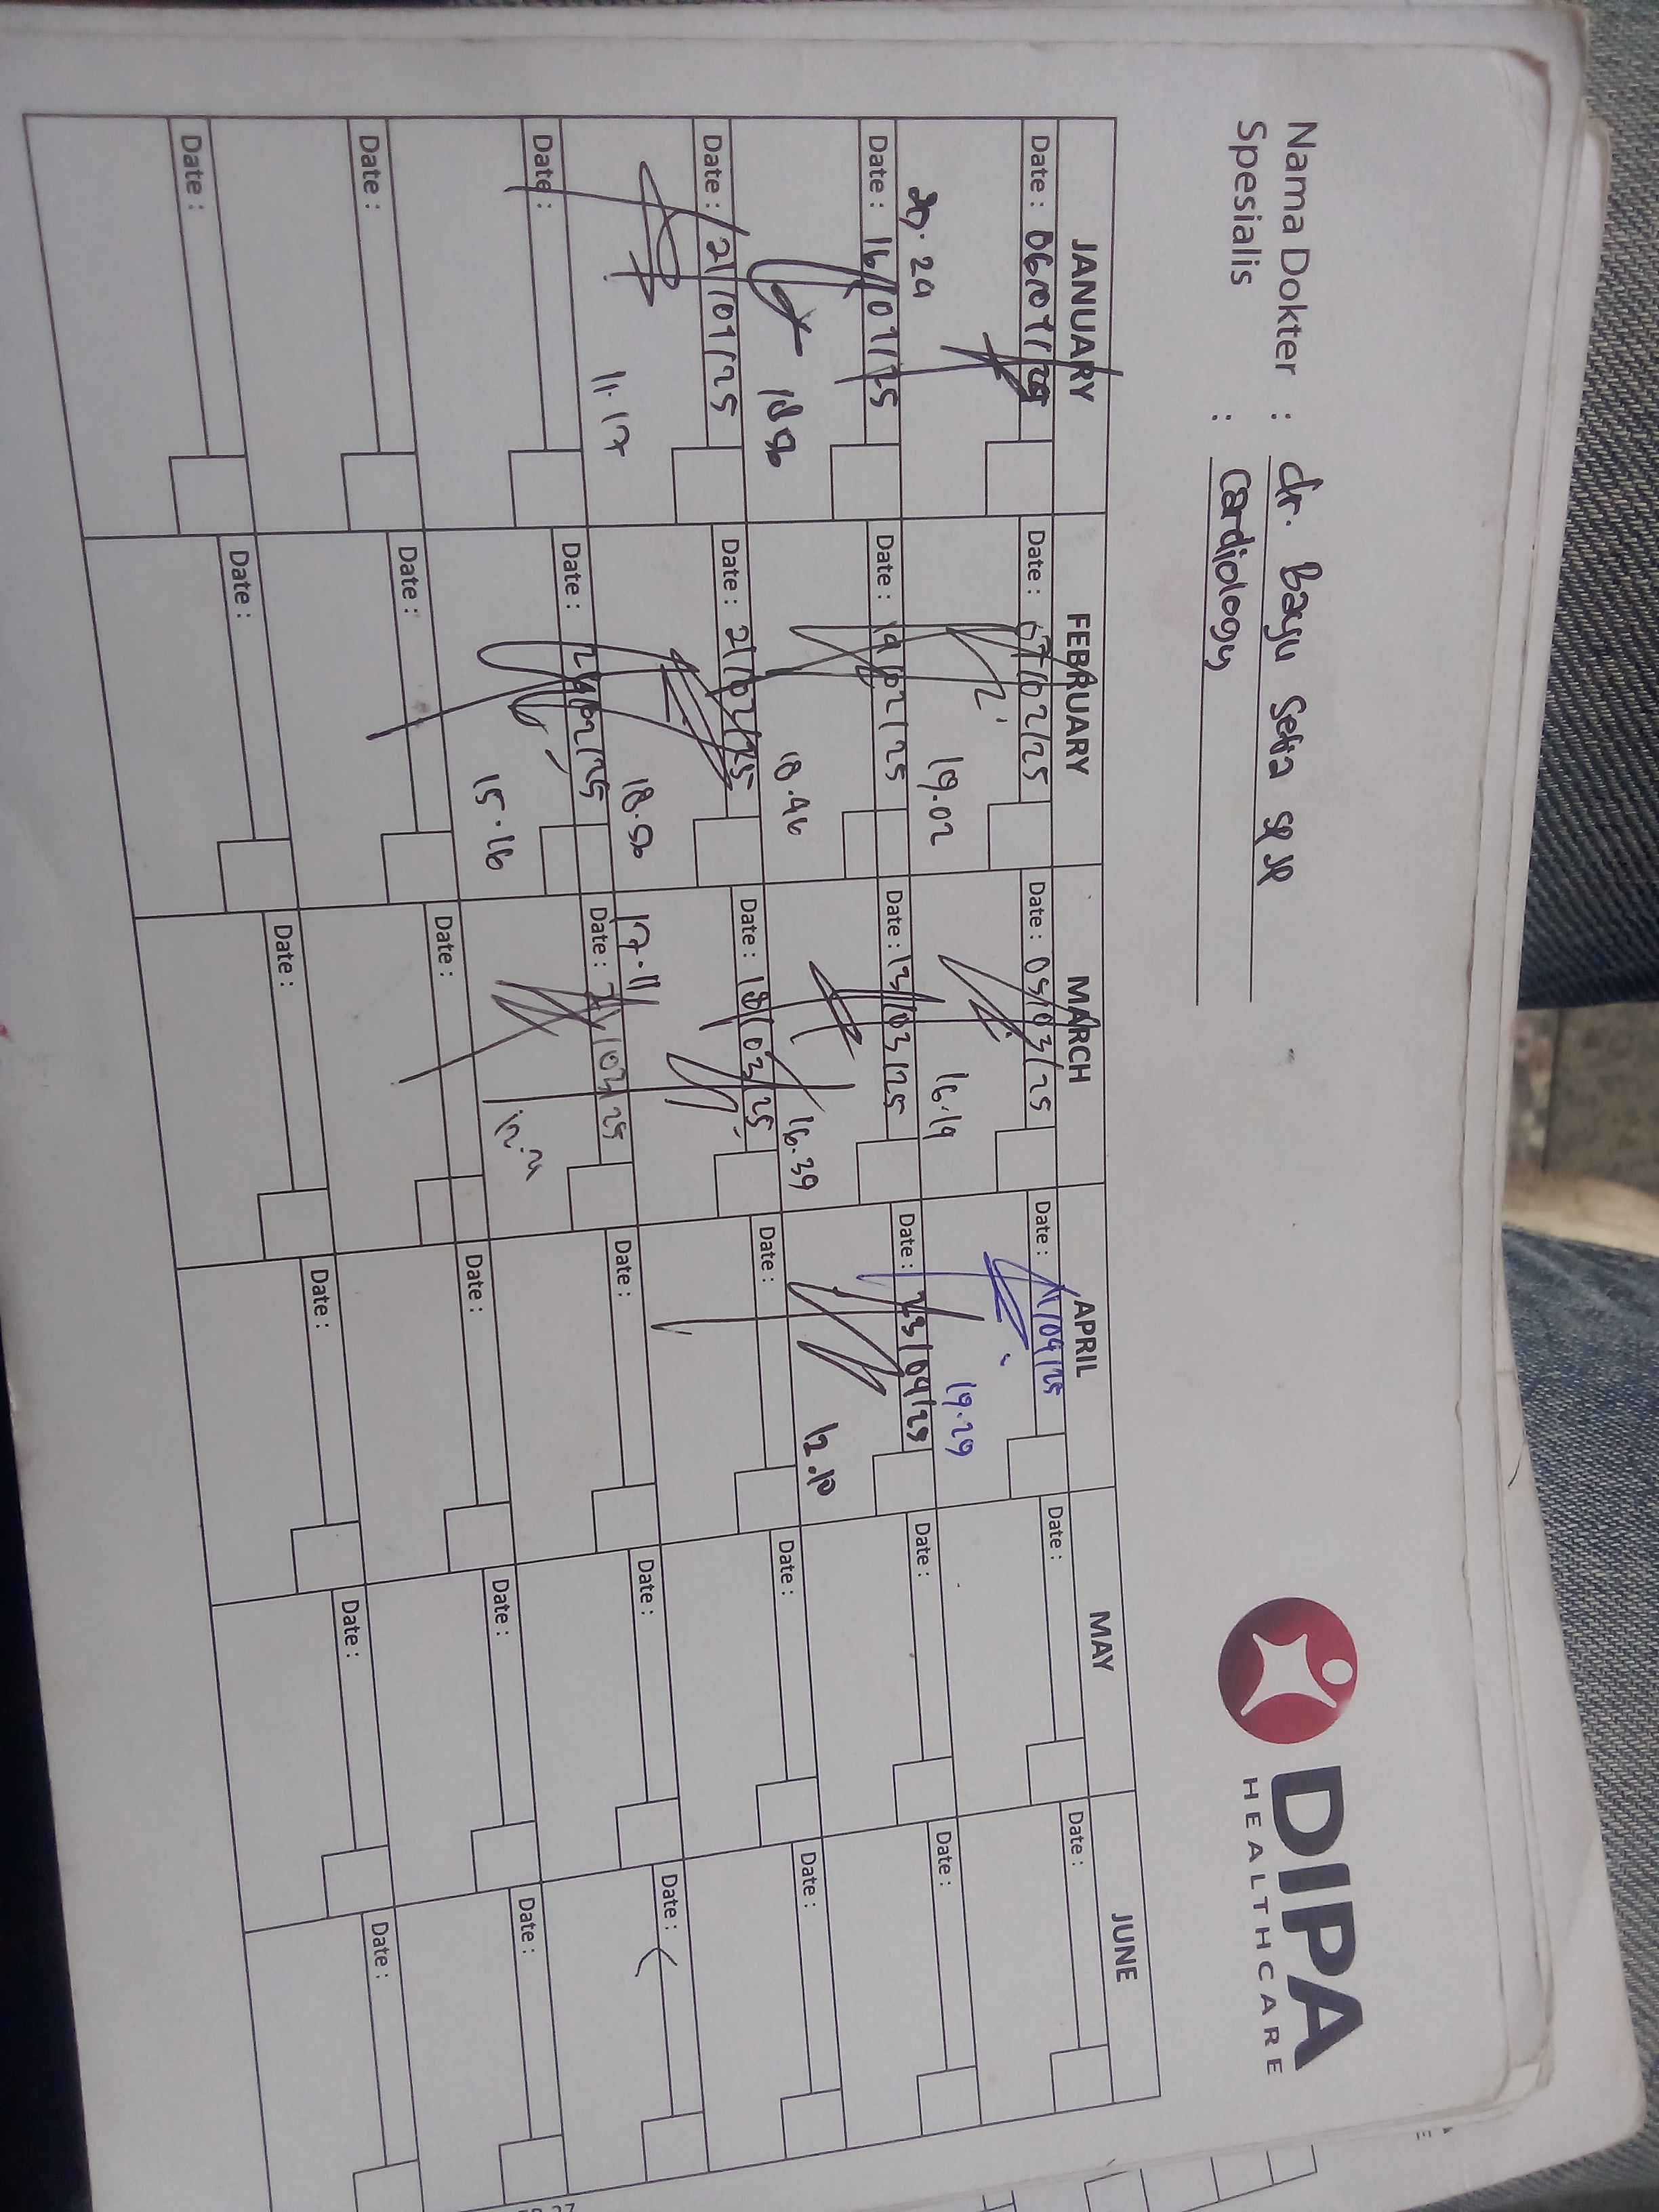 Nama Dokter : dr. Bayu Setia SP JP
Spesialis : Cardiology
DIPA
HEALTHCARE
JANUARY FEBRUARY MARCH APRIL MAY JUNE
Date : 06/01/25 Date : 07/02/25 Date : 05/03/25 Date : /04/25 Date : Date :
20.24 19.02 16.19 19.29
Date : 16/01/25 Date : 19/02/25 Date : 13/03/25 Date : 23/04/25 Date : Date :
18.50 18.46 16.39 12.10
Date : 21/01/25 Date : 21/02/25 Date : 18/03/25 Date : Date : Date :
11.17 18.50 17.11
Date : Date : 24/02/25 Date : 21/03/25 Date : Date : Date :
15.16
Date : Date : Date : Date : Date : Date :
Date : Date : Date : Date : Date : Date :